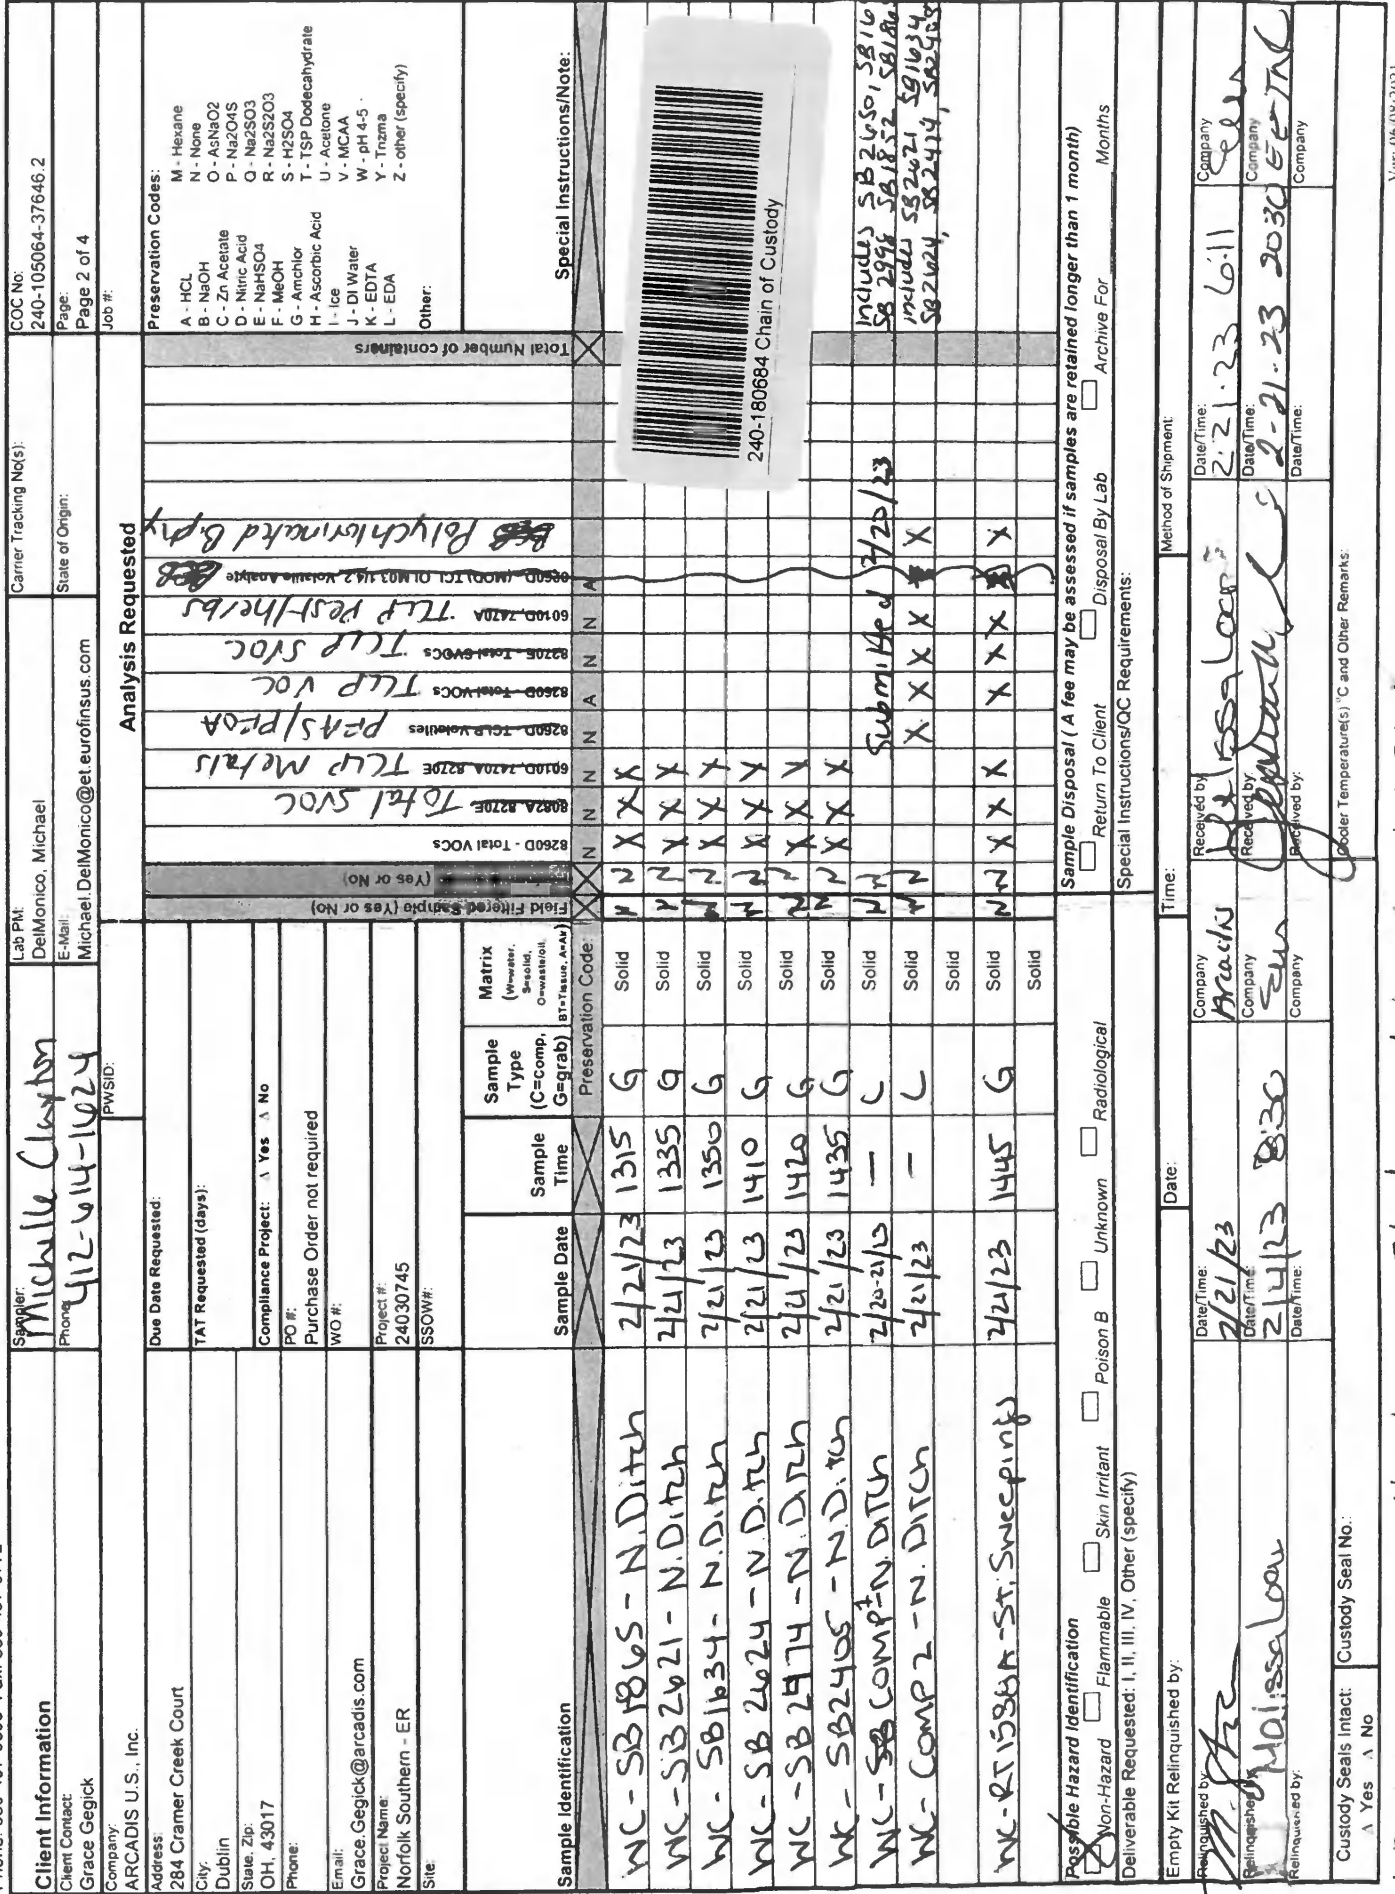 Client Information
Client Contact:
Grace Gegick
Company:
ARCADIS U.S., Inc.
Address:
284 Cramer Creek Court
City:
Dublin
State, Zip:
OH, 43017
Phone:
Email:
Grace.Gegick@arcadis.com
Project Name:
Norfolk Southern - ER
Site:
Sampler:
Michelle Clayton
Phone:
412-614-1624
PWSID:
Due Date Requested:
TAT Requested (days):
Compliance Project: Δ Yes Δ No
PO #:
Purchase Order not required
WO #:
Project #:
24030745
SSOW#:
Lab PM:
DelMonico, Michael
E-Mail:
Michael.DelMonico@et.eurofinsus.com
Carrier Tracking No(s):
State of Origin:
COC No:
240-105064-37646.2
Page:
Page 2 of 4
Job #:
Analysis Requested
Field Filtered Sample (Yes or No)
(Yes or No)
8260D - Total VOCs
8082A 8270E Total SVOC
6010D, 7470A 8270E TCLP Metals
8260D - TCLP Volatiles PFAS/PFOA
8260D - Total VOCs TCLP VOC
8270E - Total SVOCs TCLP SVOC
6010D, 7470A TCLP Pest/herbs
8260D - (MOD) TCL OLM03.1/4.2 Volatile Analyte
Polychlorinated Biphy
Total Number of containers
Preservation Codes:
A - HCL
B - NaOH
C - Zn Acetate
D - Nitric Acid
E - NaHSO4
F - MeOH
G - Amchlor
H - Ascorbic Acid
I - Ice
J - DI Water
K - EDTA
L - EDA
M - Hexane
N - None
O - AsNaO2
P - Na2O4S
Q - Na2SO3
R - Na2S2O3
S - H2SO4
T - TSP Dodecahydrate
U - Acetone
V - MCAA
W - pH 4-5
Y - Trizma
Z - other (specify)
Other:
Sample Identification
Sample Date
Sample Time
Sample Type (C=comp, G=grab)
Matrix (W=water, S=solid, O=waste/oil, BT=Tissue, A=Air)
Special Instructions/Note:
Preservation Code: N N N N A N N A
WC - SB1865 - N.Ditch 2/21/23 1315 G Solid N N X X X
WC - SB2621 - N.Ditch 2/21/23 1335 G Solid N N X X X
WC - SB1634 - N.Ditch 2/21/23 1350 G Solid N N X X X
WC - SB2624 - N.Ditch 2/21/23 1410 G Solid N N X X X
WC - SB2474 - N.Ditch 2/21/23 1420 G Solid N N X X X
WC - SB2405 - N.Ditch 2/21/23 1435 G Solid N N X X X
WC - COMP1 - N.DITCH 2/20-21/23 — C Solid N N Submitted 2/20/23 Includes SB2650, SB16
SB 2998 SB1852 SB186
WC - COMP2 - N. DITCH 2/21/23 — C Solid N N X X X X X includes SB2621 SB1634
SB2624, SB2474, SB2405
Solid
WC - RT158A - St. Sweepings 2/21/23 1445 G Solid N N X X X X X X X
Solid
240-180684 Chain of Custody
Possible Hazard Identification
Non-Hazard Flammable Skin Irritant Poison B Unknown Radiological
Sample Disposal ( A fee may be assessed if samples are retained longer than 1 month)
Return To Client Disposal By Lab Archive For Months
Deliverable Requested: I, II, III, IV, Other (specify)
Special Instructions/QC Requirements:
Empty Kit Relinquished by:
Date:
Time:
Method of Shipment:
Relinquished by:
Date/Time:
2/21/23
Company
Arcadis
Received by:
Date/Time:
2.21.23 6:11
Company
Relinquished by:
Melissa
Date/Time:
8:30
Company
Received by:
Date/Time:
2-21-23 2030
Company
Relinquished by:
Date/Time:
Company
Received by:
Date/Time:
Company
Custody Seals Intact:
Δ Yes Δ No
Custody Seal No.:
Cooler Temperature(s) °C and Other Remarks:
Ver: 06/08/2021